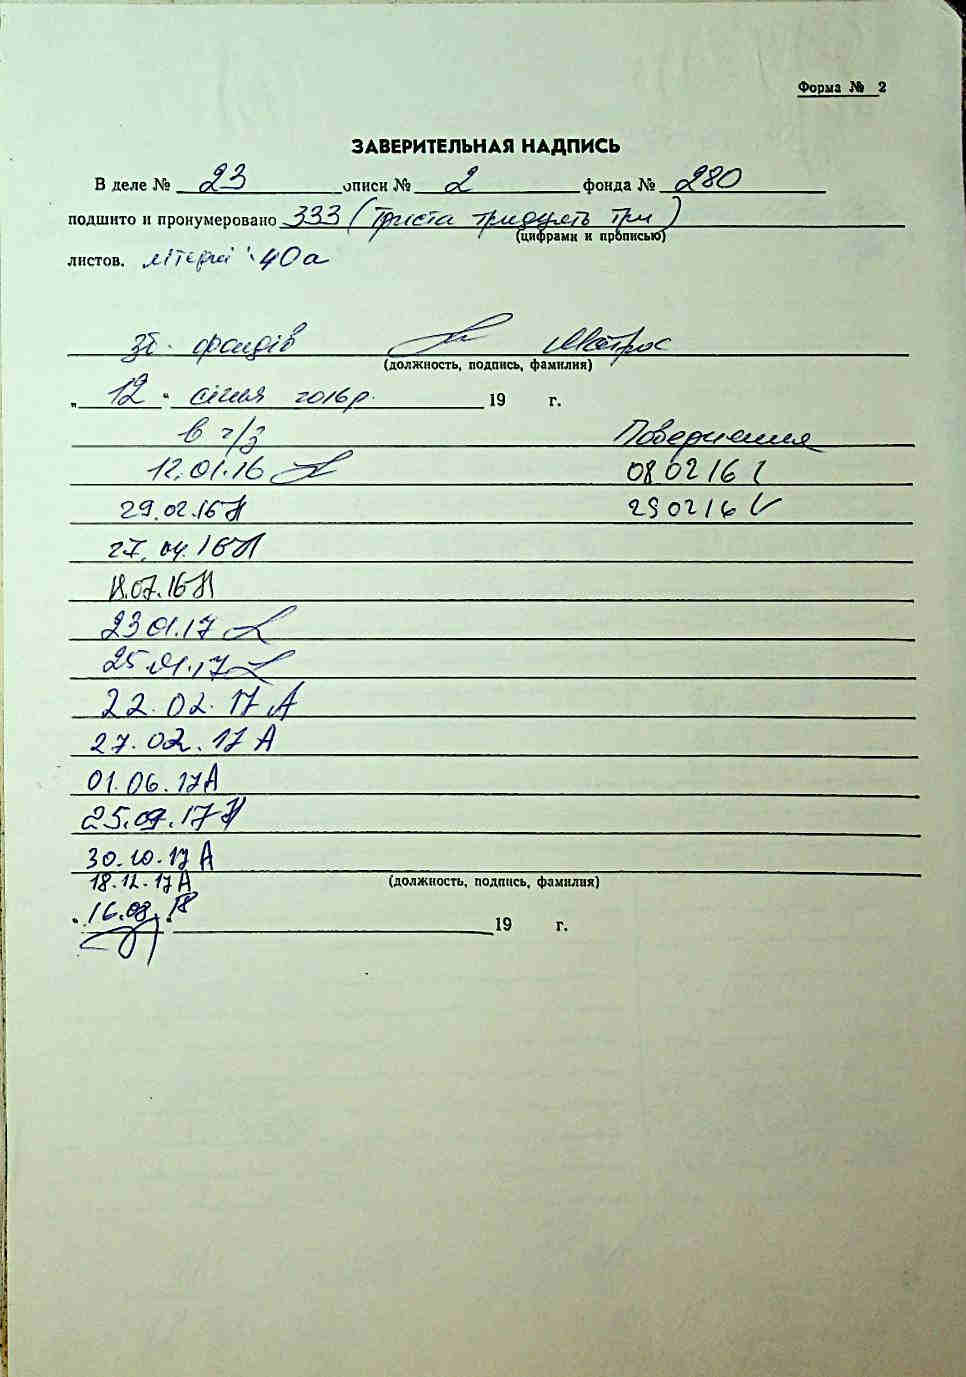 Форма № 2
ЗАВЕРИТЕЛЬНАЯ НАДПИСЬ
В деле № 23 описи № 2 фонда № 280
подшито и пронумеровано 333 (триста тридцять три)
(цифрами и прописью)
листов. літерні 40а
зб. фондів Матрос
(должность, подпись, фамилия)
„ 12 “ січня 2016 р. 19 г.
в ч/з Повернення
12.01.16 08 02 16
29.02.16 29 02 16
27.04.16
18.07.16
23 01.17
25.01.17
22.02.17 А
27.02.17 А
01.06.17 А
25.09.17
30.10.17 А
18.12.17 А
(должность, подпись, фамилия)
„ 16.08.18 “ 19 г.